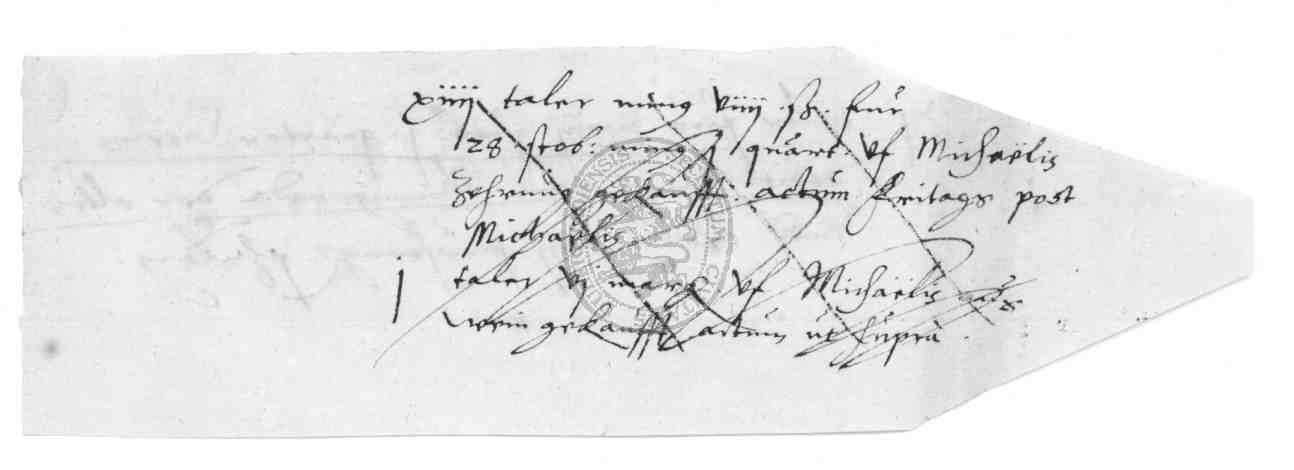 xiiij taler min9 viiij sz. fur
28 stob: min9 j quart. vf Michaëlis
Zehrung gekaufft: actum Freitags post
Michaëlis
j taler vj marg vf Michaëlis
wein gekaufft actum ut supra.